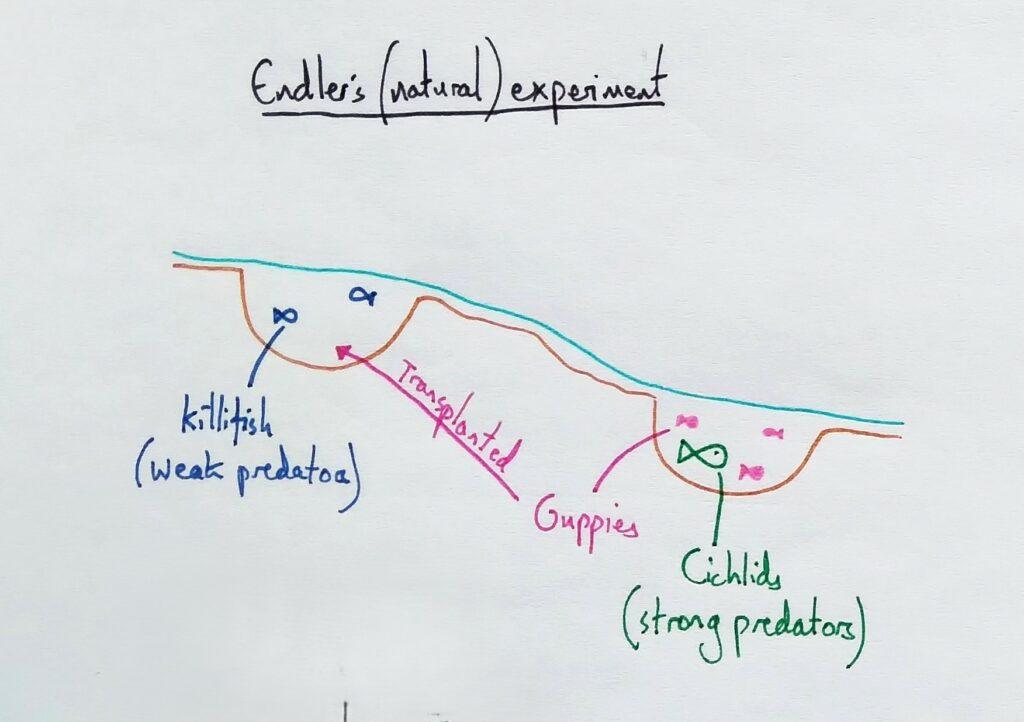 Endler's (natural) experiment
Transplanted
killifish
(weak predator)
Guppies
Cichlids
(strong predators)